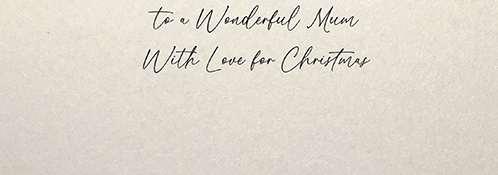 to a Wonderful Mum
With Love for Christmas